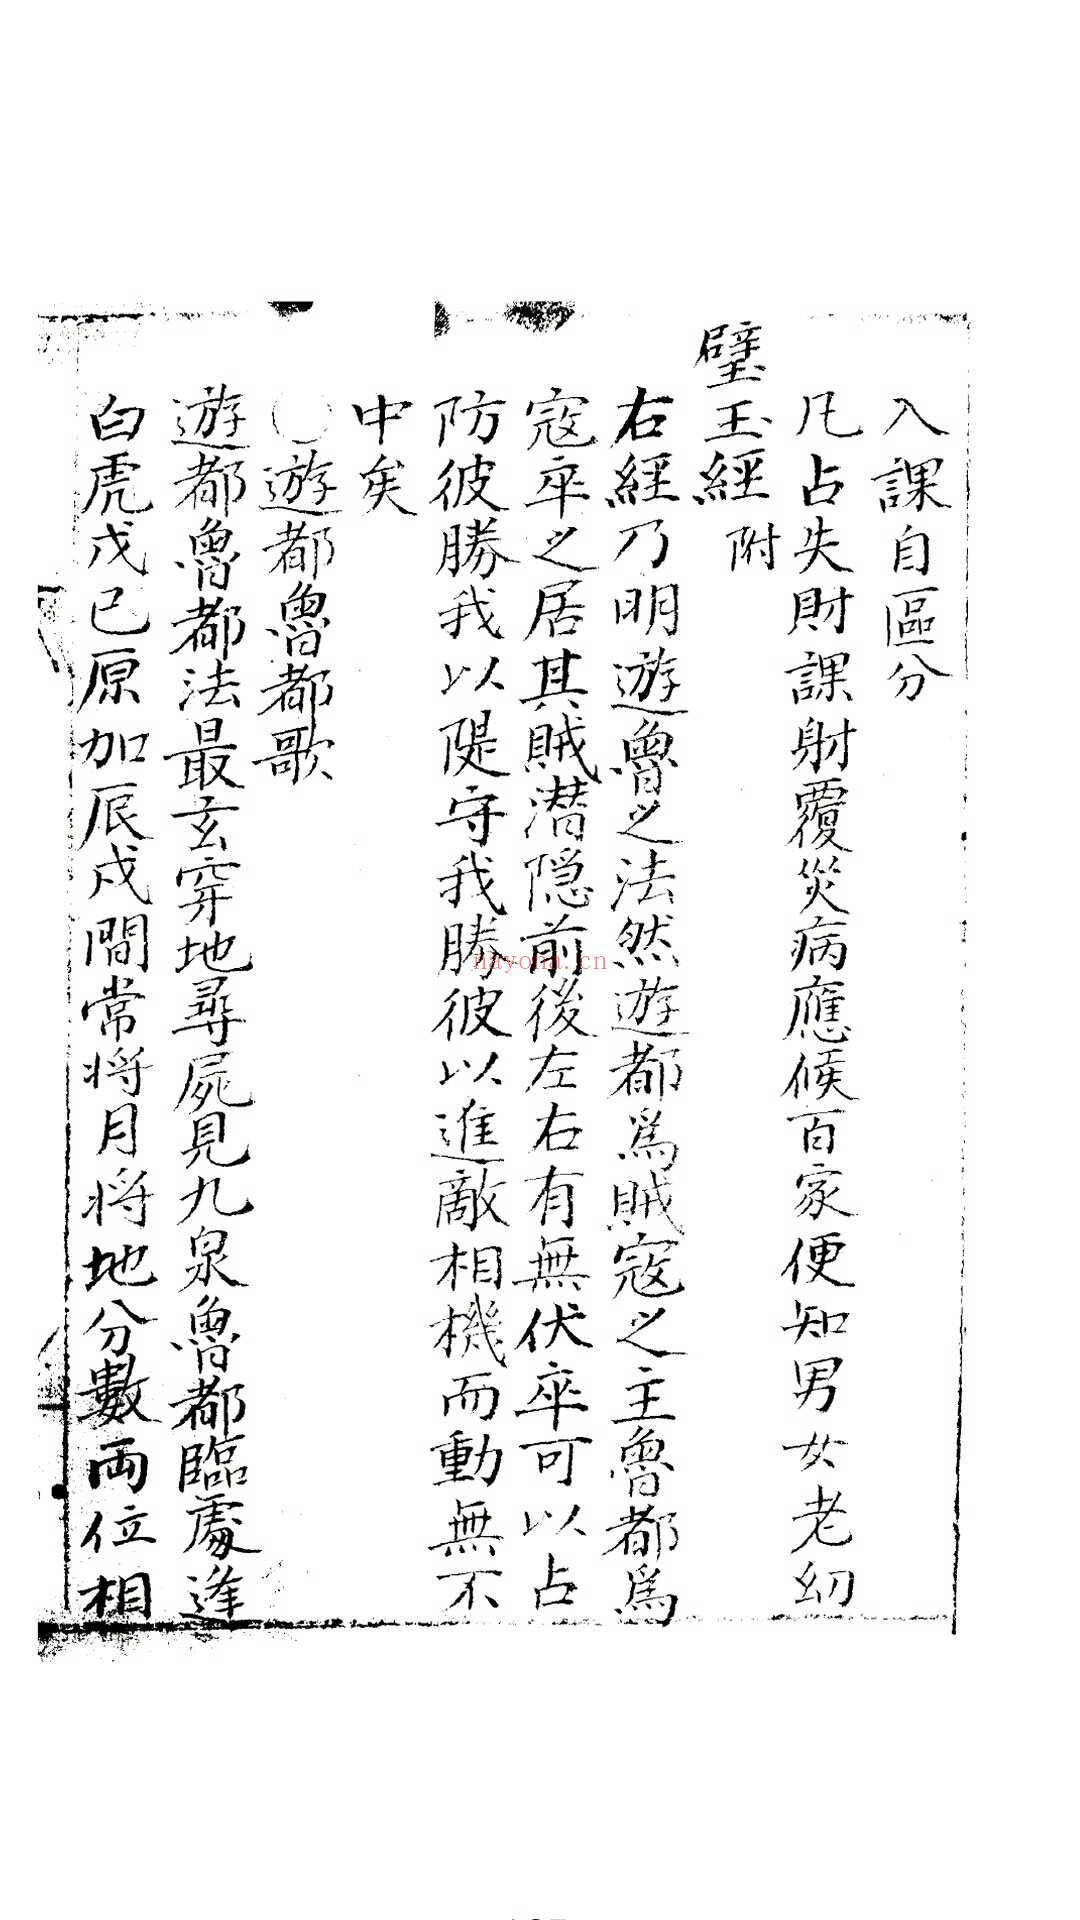 入課自區分
凡占失財課射覆災病應候百家便知男女老幼
璧玉經附
右經乃明遊魯之法然遊都爲賊寇之主魯都爲
寇卒之居其賊潜隐前後左右有無伏卒可以占
防彼勝我以隄守我勝彼以進敵相機而動無不
中矣
〇遊都魯都歌
遊都魯都法最玄穿地尋屍見九泉魯都臨處逢
白虎戊己原加辰戌間常将月将地分數両位相
nayona.cn